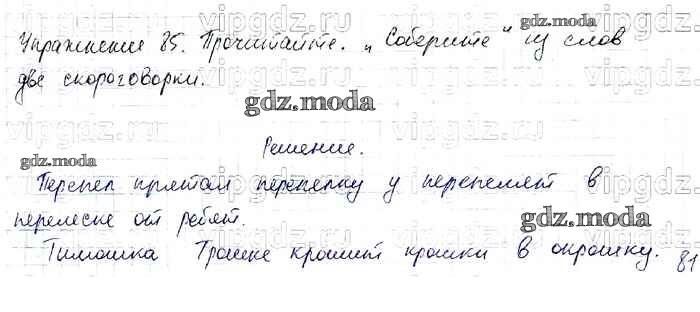 Упражнение 85. Прочитайте. „Соберите" из слов
две скороговорки.
Решение.
Перепел прятал перепелку у перепелят в
перелеске от ребят.
Тимошка Трошке крошит крошки в окрошку.
81
gdz.moda
gdz.moda
gdz.moda
gdz.moda
vipgdz
vipgdz
vipgdz
vipgdz